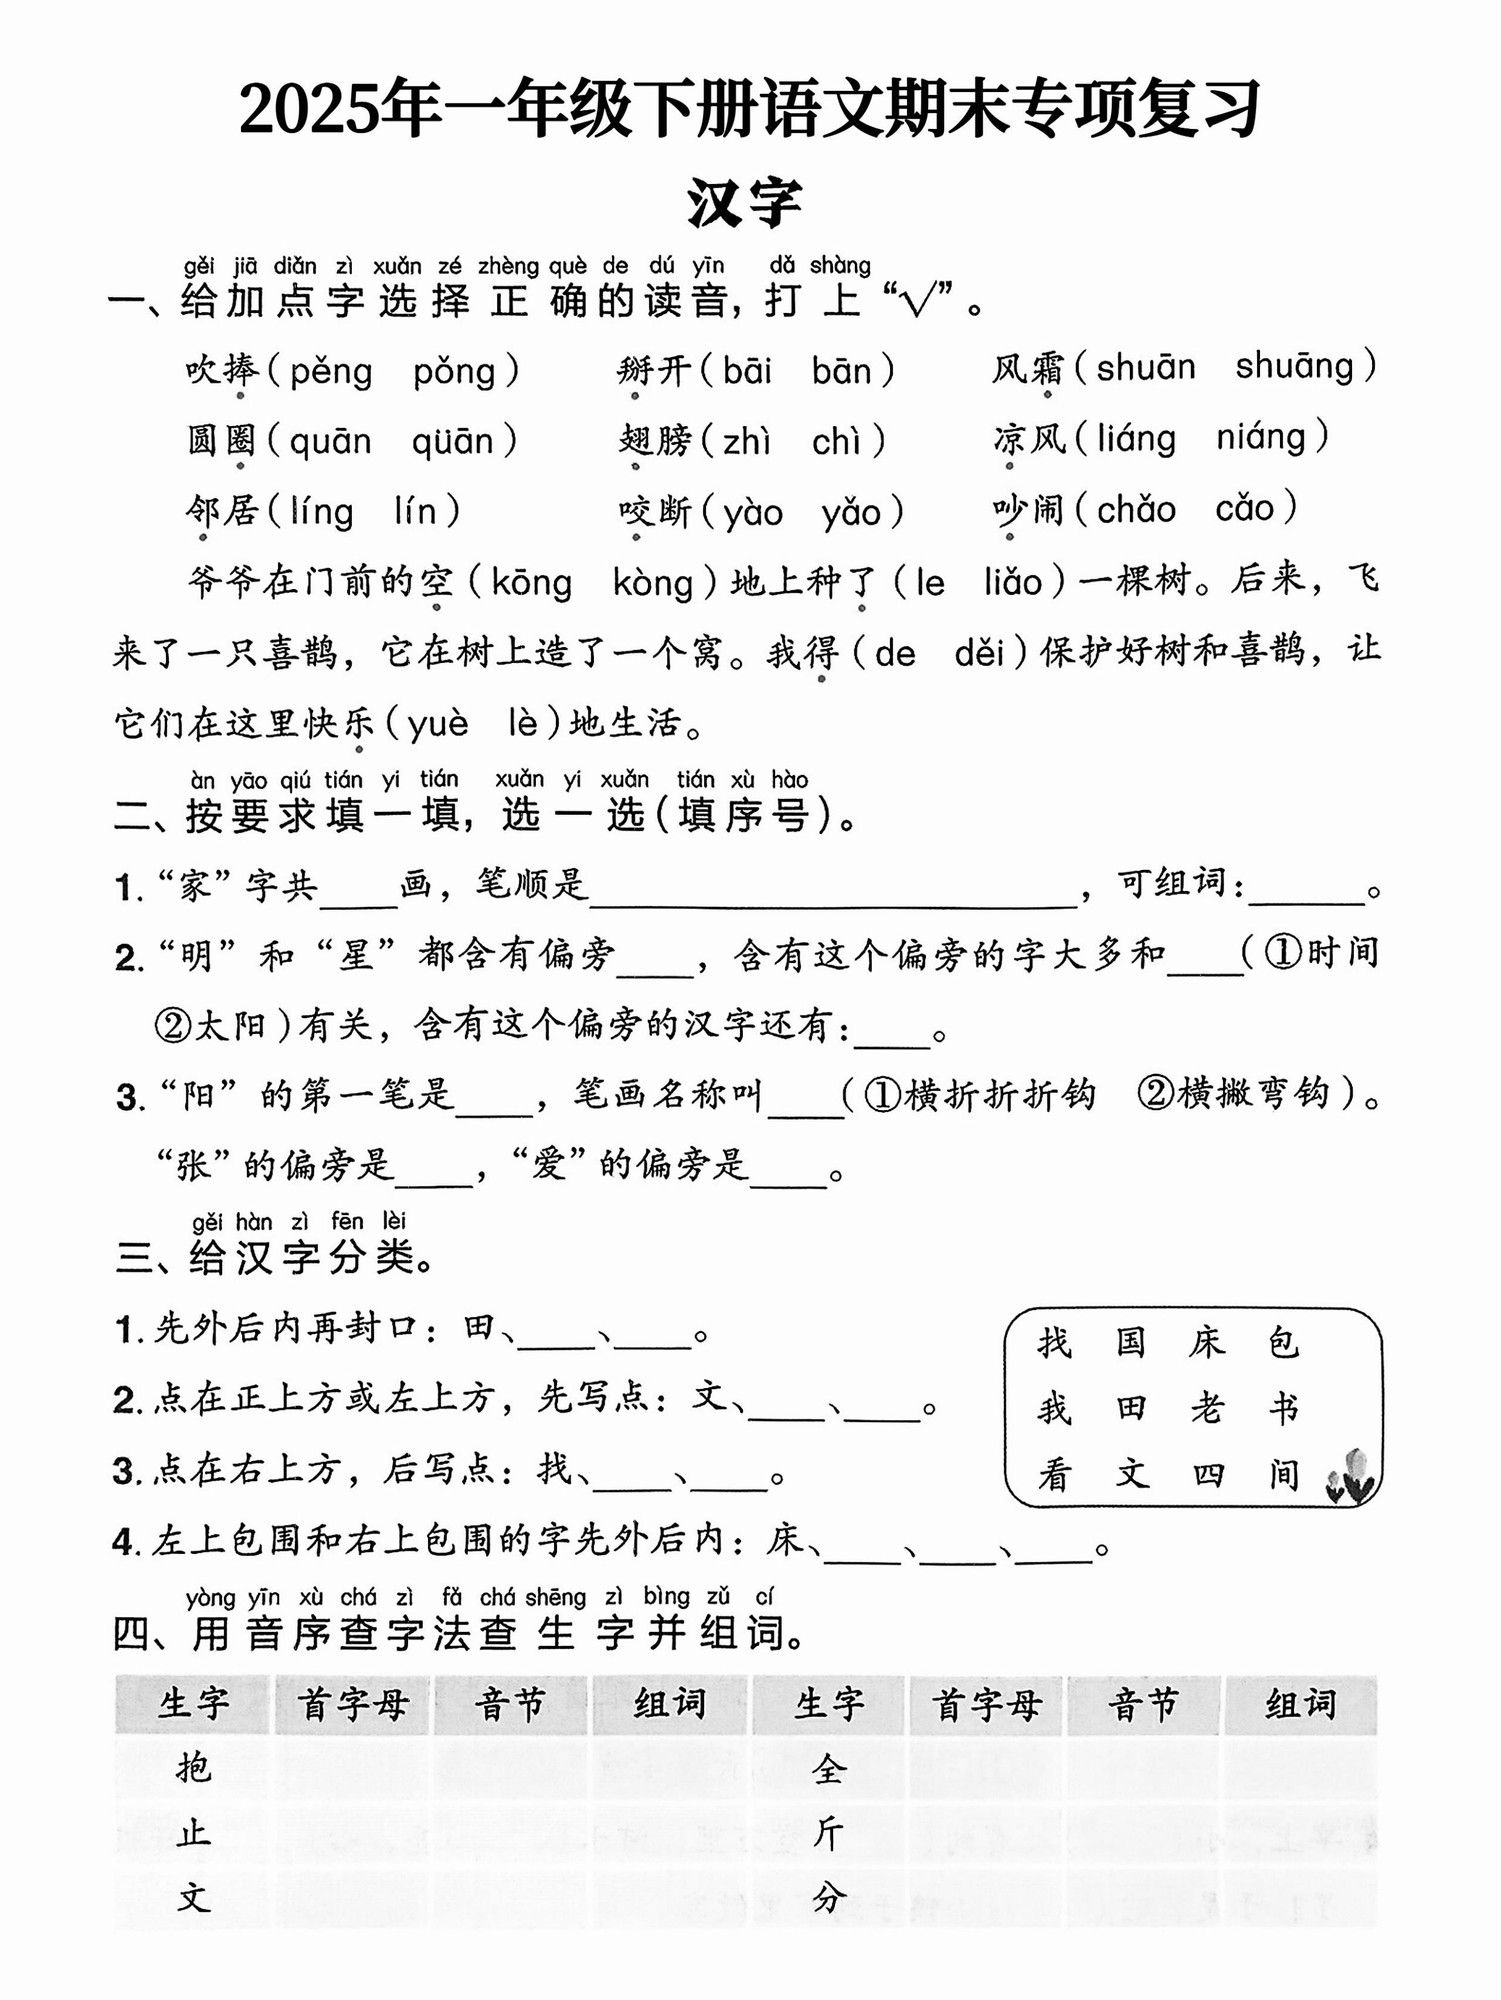 2025年一年级下册语文期末专项复习
汉字
gěi jiā diǎn zì xuǎn zé zhèng què de dú yīn dǎ shàng
一、给加点字选择正确的读音，打上“√”。
吹捧（pěng pǒng） 掰开（bāi bān） 风霜（shuān shuāng）
圆圈（quān qüān） 翅膀（zhì chì） 凉风（liáng niáng）
邻居（líng lín） 咬断（yào yǎo） 吵闹（chǎo cǎo）
爷爷在门前的空（kōng kòng）地上种了（le liǎo）一棵树。后来，飞
来了一只喜鹊，它在树上造了一个窝。我得（de děi）保护好树和喜鹊，让
它们在这里快乐（yuè lè）地生活。
àn yāo qiú tián yi tián xuǎn yi xuǎn tián xù hào
二、按要求填一填，选一选（填序号）。
1. “家”字共____画，笔顺是____________________，可组词：______。
2. “明”和“星”都含有偏旁____，含有这个偏旁的字大多和____（①时间
②太阳）有关，含有这个偏旁的汉字还有：____。
3. “阳”的第一笔是____，笔画名称叫____（①横折折折钩 ②横撇弯钩）。
“张”的偏旁是____，“爱”的偏旁是____。
gěi hàn zì fēn lèi
三、给汉字分类。
1. 先外后内再封口：田、____、____。
2. 点在正上方或左上方，先写点：文、____、____。
3. 点在右上方，后写点：找、____、____。
4. 左上包围和右上包围的字先外后内：床、____、____、____。
找 国 床 包
我 田 老 书
看 文 四 间
yòng yīn xù chá zì fǎ chá shēng zì bìng zǔ cí
四、用音序查字法查生字并组词。
生字 首字母 音节 组词 生字 首字母 音节 组词
抱 全
止 斤
文 分